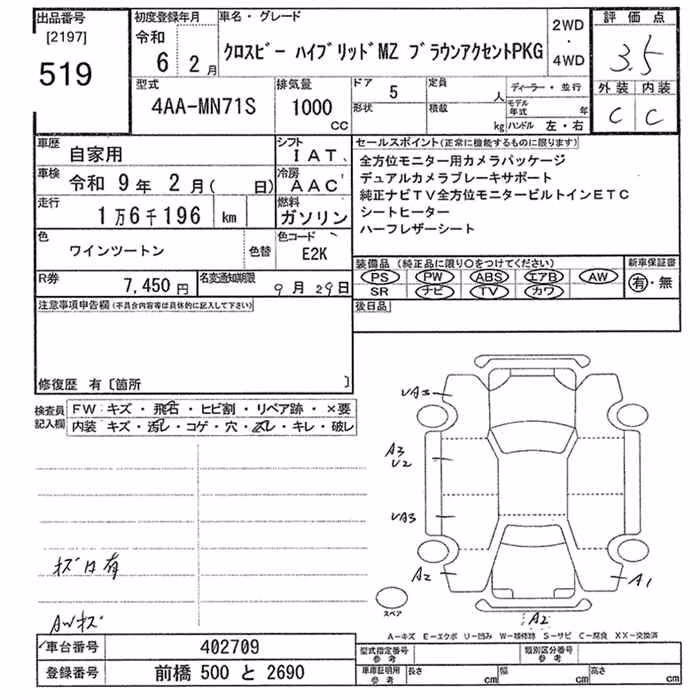 出品番号
[2197]
519
初度登録年月
令和
6 2月
車名・グレード
クロスビー ハイブリッドMZ ブラウンアクセントPKG
2WD
・
4WD
評価点
3.5
外装 内装
C C
型式
4AA-MN71S
排気量
1000
CC
ドア
5
形状
定員
人
積載
kg
ディーラー・並行
モデル年式 年
ハンドル 左・右
車歴
自家用
シフト
IAT
車検
令和 9年 2月( 日)
冷房
AAC
走行
1万6千196 km
燃料
ガソリン
色
ワインツートン
色替
色コード
E2K
R券
7,450円
名変通知期限
9月29日
セールスポイント(正常に機能するものに限ります)
全方位モニター用カメラパッケージ
デュアルカメラブレーキサポート
純正ナビTV全方位モニタービルトインETC
シートヒーター
ハーフレザーシート
装備品 (純正品に限り○をつけてください)
PS PW ABS エアB AW
SR ナビ TV カワ
新車保証書
有・無
後日品
注意事項申告欄(不具合内容等は具体的に記入して下さい)
修復歴 有〔箇所 〕
検査員記入欄
FW:キズ・飛石・ヒビ割・リペア跡・×要
内装:キズ・汚レ・コゲ・穴・スレ・キレ・破レ
VA3
A3
V2
VA3
A2
A1
A2
スペア
キズ有
AWキズ
A-キズ E-エクボ U-凹み W-補修跡 S-サビ C-腐食 XX-交換済
車台番号
402709
登録番号
前橋 500 と 2690
型式指定番号
参考
類別区分番号
参考
車庫証明用
参考
長さ cm
幅 cm
高さ cm